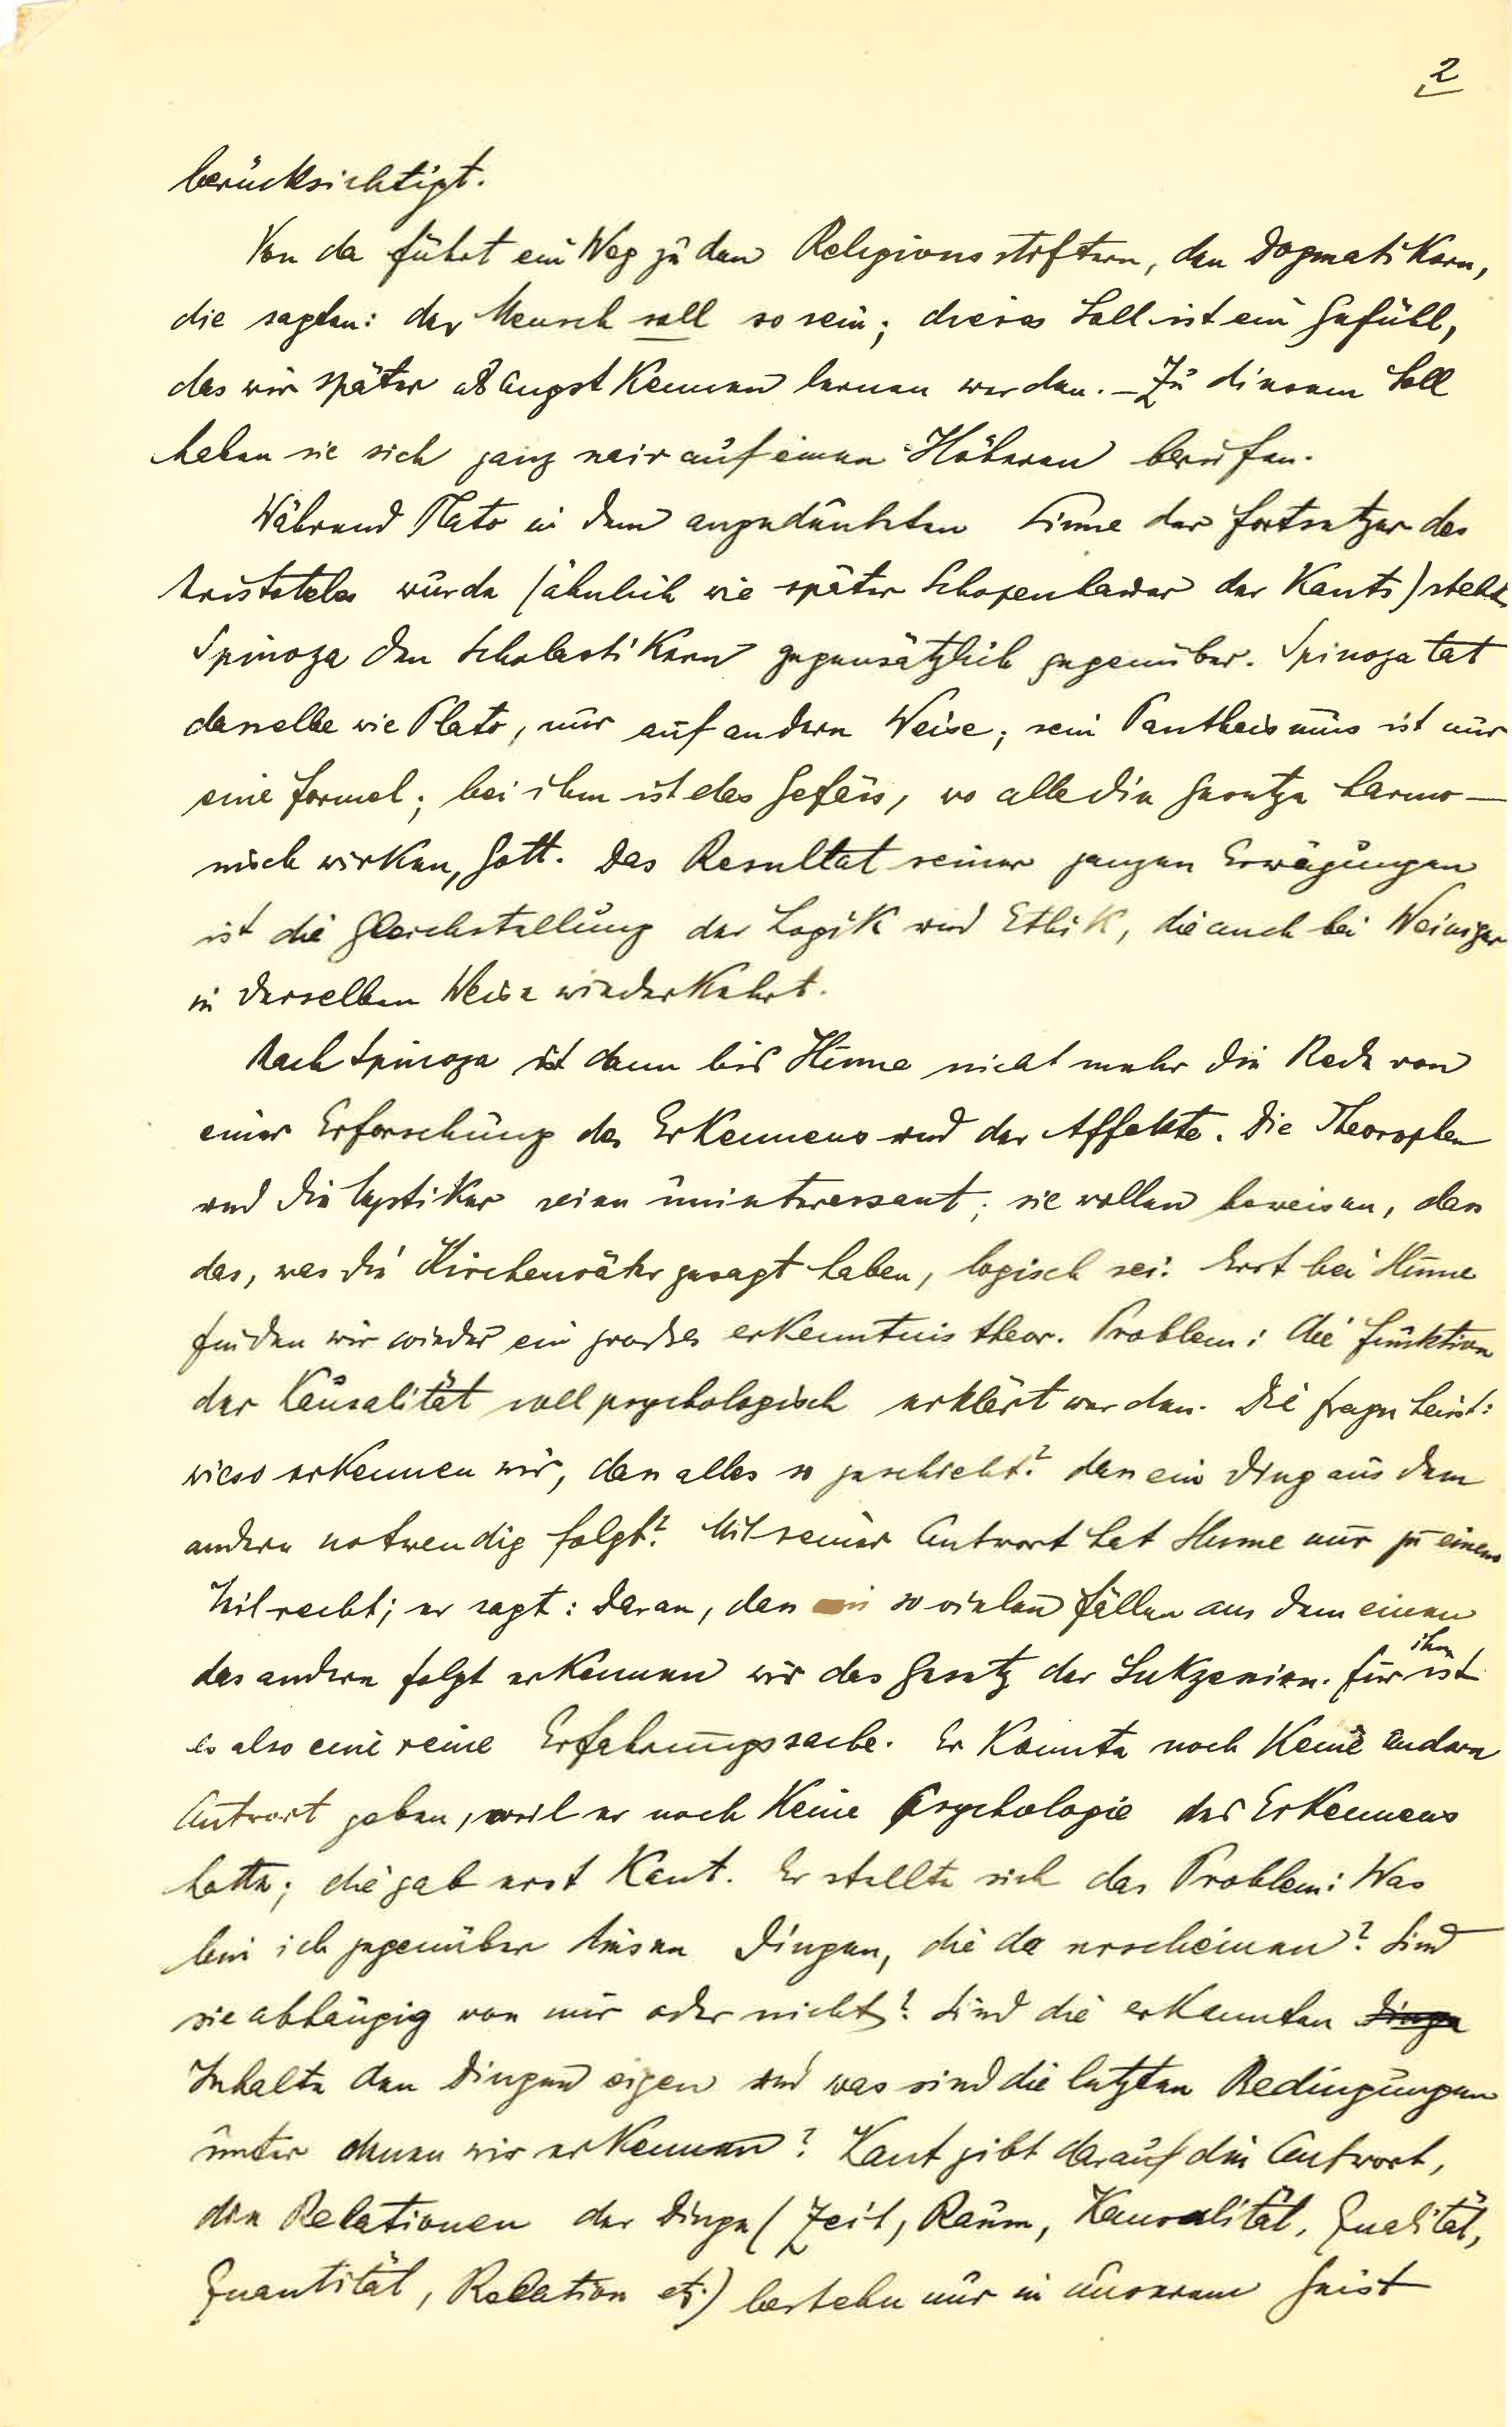 2
berücksichtigt.
Von da führt ein Weg zu den Religionsstiftern, den Dogmatikern,
die sagten: der Mensch soll so sein; dieses Soll ist ein Gefühl,
das wir später als Angst kennen lernen werden. – Zu diesem Soll
haben sie sich ganz naiv auf einen Höheren berufen.
Während Plato in dem angedeuteten Sinne der Fortsetzer des
Aristoteles wurde (ähnlich wie später Schopenhauer der Kants) steht
Spinoza den Scholastikern gegensätzlich gegenüber. Spinoza tat
dasselbe wie Plato, nur auf andere Weise; sein Pantheismus ist nur
eine Formel; bei ihm ist das Gefäss, wo alle die Gesetze harmo-
nisch wirken, Gott. Das Resultat seiner ganzen Erwägungen
ist die Gleichstellung der Logik und Ethik, die auch bei Weininger
in derselben Weise wiederkehrt.
Nach Spinoza ist dann bis Hume nicht mehr die Rede von
einer Erforschung des Erkennens und der Affekte. Die Theosophen
und die Mystiker seien uninteressant; sie wollen beweisen, dass
das, was die Kirchenväter gesagt haben, logisch sei. Erst bei Hume
finden wir wieder ein großes erkenntnistheor. Problem: die Funktion
der Kausalität soll psychologisch erklärt werden. Die Frage heisst:
wieso erkennen wir, dass alles so geschieht? dass ein Ding aus dem
andern notwendig folgt? Mit seiner Antwort hat Hume nur zu einem
Teil recht; er sagt: daran, dass in so vielen Fällen aus dem einen
das andere folgt erkennen wir das Gesetz der Sukzession. Für ihn ist
es also eine reine Erfahrungssache. Er konnte noch keine andere
Antwort geben, weil er noch keine Psychologie des Erkennens
hatte; die gab erst Kant. Er stellte sich das Problem: Was
bin ich gegenüber diesen Dingen, die da erscheinen? Sind
sie abhängig von mir oder nicht? Sind die erkannten Dinge
Inhalte den Dingen eigen und was sind die letzten Bedingungen
unter denen wir erkennen? Kant gibt darauf die Antwort,
die Relationen der Dinge (Zeit, Raum, Kausalität, Qualität,
Quantität, Relation etc.) bestehn nur in unserem Geist